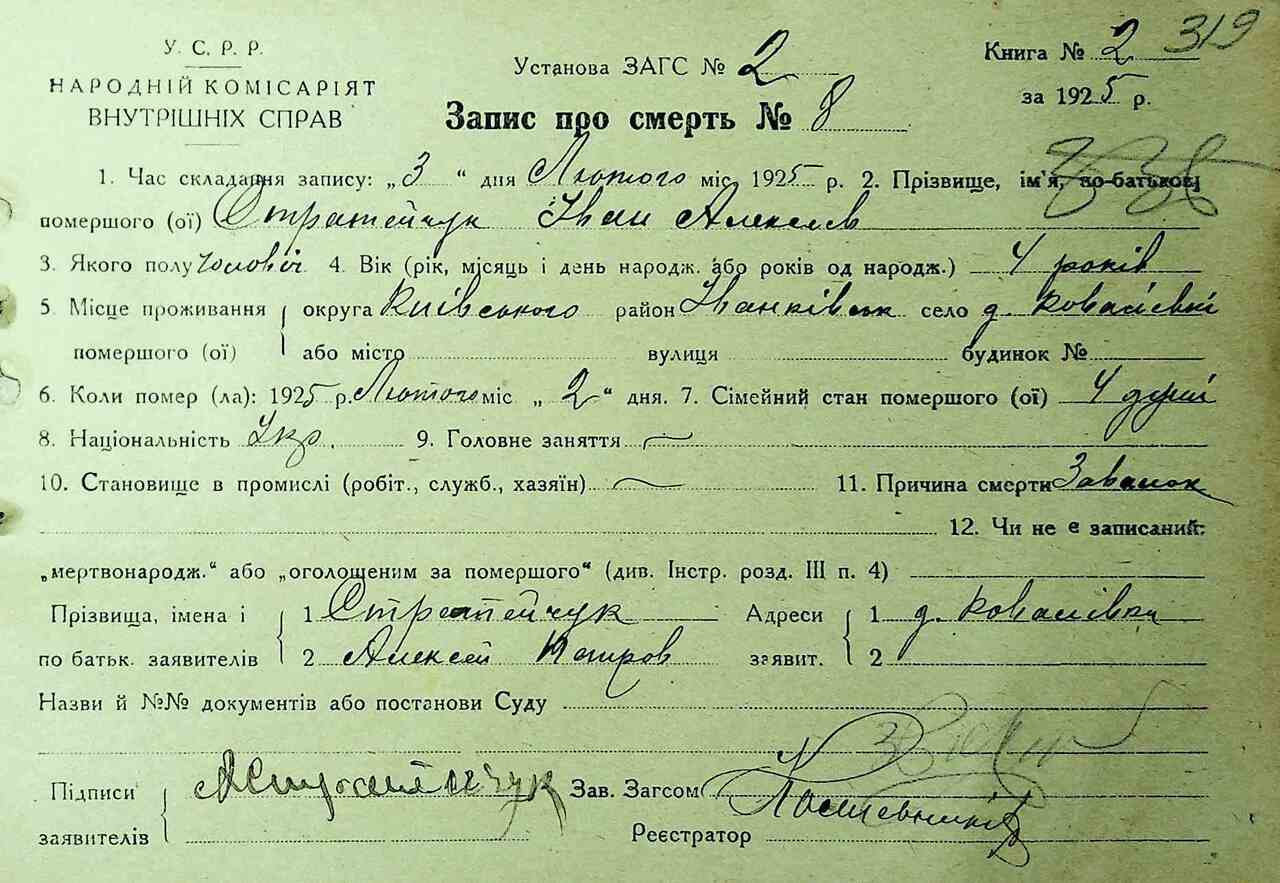 У. С. Р. Р.
НАРОДНІЙ КОМІСАРІЯТ
ВНУТРІШНІХ СПРАВ
Установа ЗАГС № 2
Книга № 2 319
за 1925 р.
Запис про смерть № 8
1. Час складання запису: „3“ дня Лютого міс 1925 р. 2. Прізвище, ім'я, по-батькові
помершого (ої) Стратейчук Іван Алексеев
3. Якого полу Чоловіч. 4. Вік (рік, місяць і день народж. або років од народж.) 4 років
5 Місце проживання округа Київського район Іванківськ село д. Ковалівки
помершого (ої) або місто вулиця будинок №
6. Коли помер (ла): 1925 р. Лютого міс „2“ дня. 7. Сімейний стан помершого (ої) 4 душі
8. Національність Укр. 9. Головне заняття —
10. Становище в промислі (робіт., служб., хазяїн) — 11. Причина смерти Завалок
12. Чи не є записаний:
„мертвонародж.“ або „оголошеним за помершого“ (див. Інстр. розд. III п. 4)
Прізвища, імена і 1 Стратейчук Адреси 1 д. Ковалівки
по батьк. заявителів 2 Алексей Петров заявит. 2
Назви й №№ документів або постанови Суду
Підписи Зав. Загсом
заявителів Реєстратор